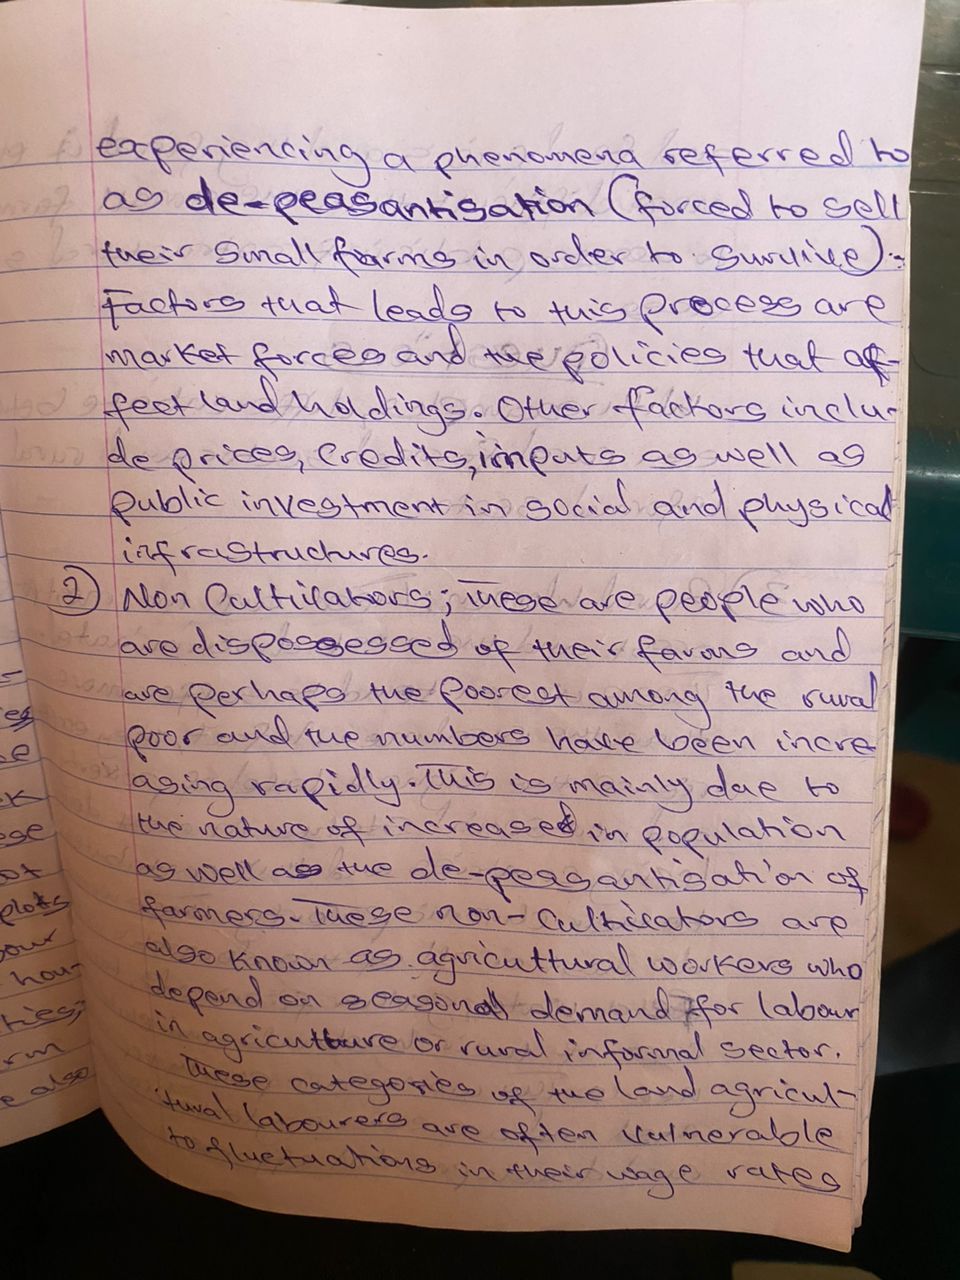 experiencing a phenomena referred to
as de-peasantisation (forced to sell
their small farms in order to survive).
Factors that leads to this process are
market forces and the policies that af-
fect land holdings. Other factors inclu-
de prices, credits, imputs as well as
public investment in social and physical
infrastructures.
2) Non Cultivators; These are people who
are dispossessed of their farms and
are perhaps the poorest among the rural
poor and the numbers have been incre
asing rapidly. This is mainly due to
the nature of increased in population
as well as the de-peasantisation of
farmers. These non-cultivators are
also known as agricultural workers who
depend on seasonal demand for labour
in agriculture or rural informal sector.
These categories of the land agricul-
tural labourers are often vulnerable
to fluctuations in their wage rates
es
e
k
ese
ot
plots
bour
hou-
ties;
rm
e also